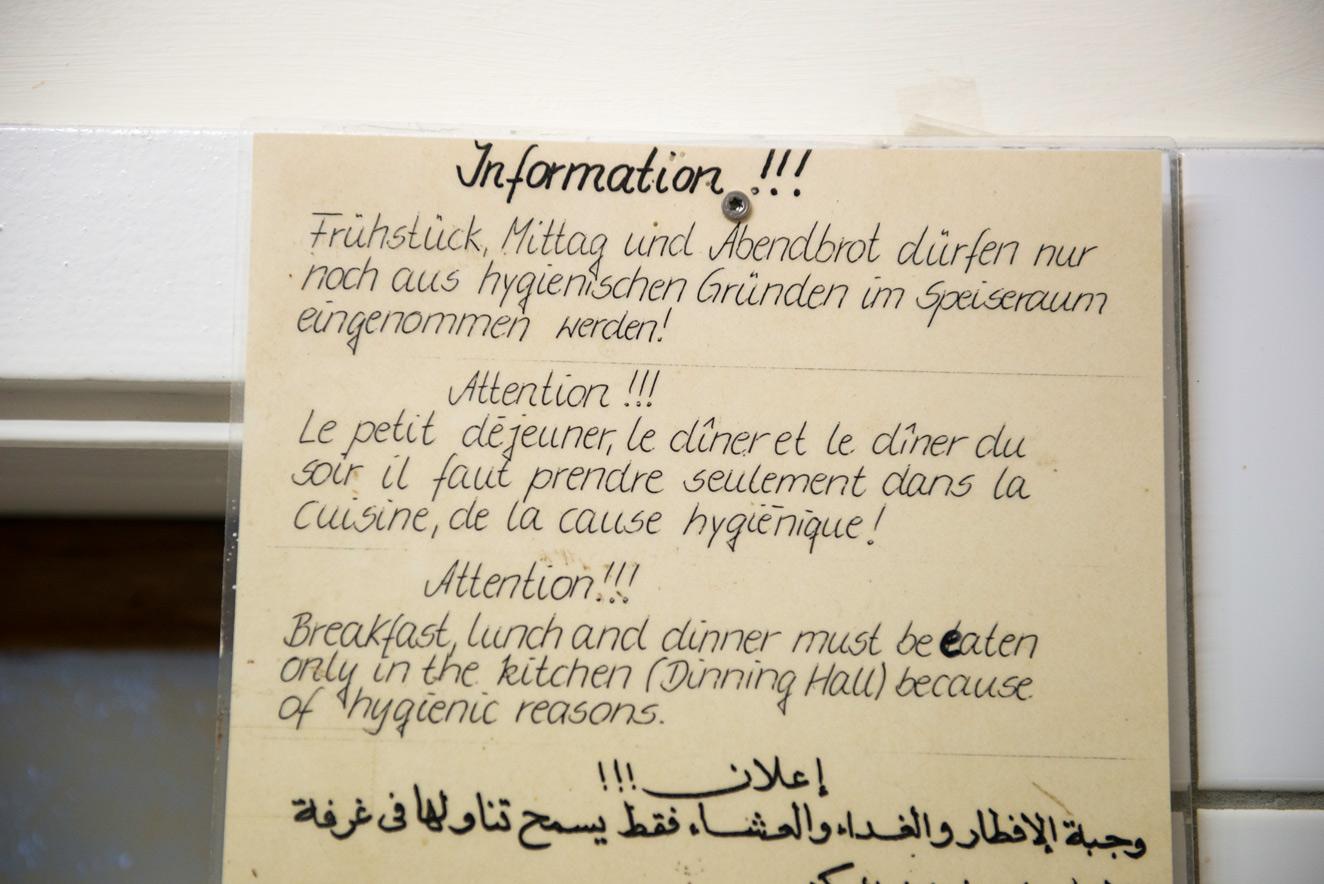 Information !!!
Frühstück, Mittag und Abendbrot dürfen nur
noch aus hygienischen Gründen im Speiseraum
eingenommen werden!
Attention !!!
Le petit déjeuner, le dîner et le dîner du
soir il faut prendre seulement dans la
cuisine, de la cause hygiēnique!
Attention!!!
Breakfast, lunch and dinner must be eaten
only in the kitchen (Dinning Hall) because
of hygienic reasons.
إعلان !!!
وجبة الإفطار والغداء والعشاء فقط يسمح تناولها فى غرفة